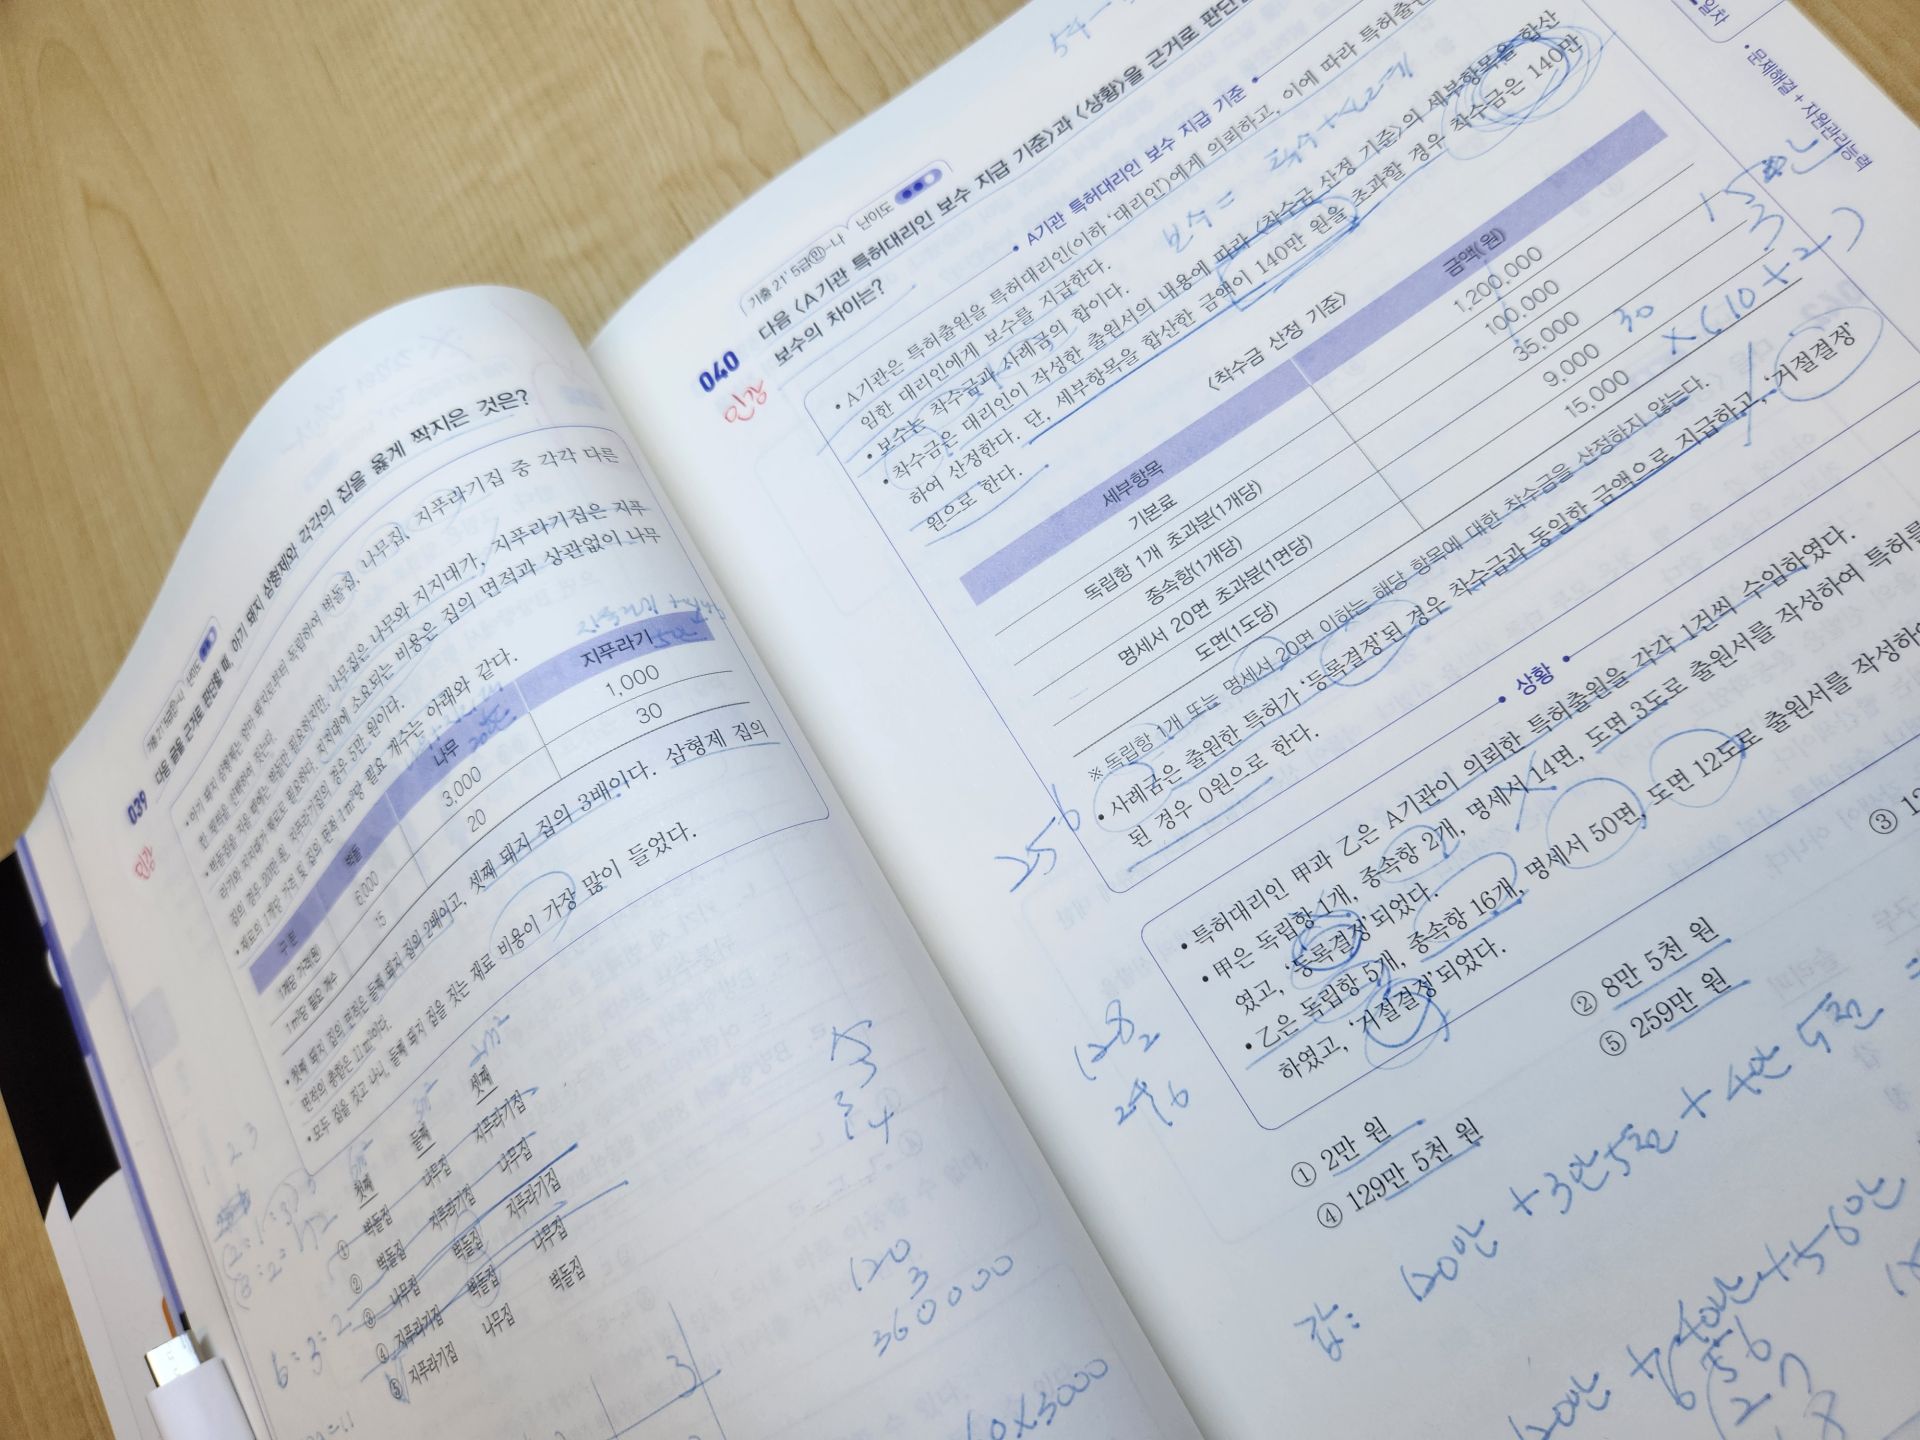 039
기출 21' 난이도
다음 글을 근거로 판단할 때, 아기 돼지 삼형제와 각각의 집을 옳게 짝지은 것은?
민경
• 아기 돼지 삼형제는 엄마 돼지로부터 독립하여 벽돌집, 나무집, 지푸라기집 중 각각 다른
한 채씩을 선택하여 짓는다.
• 벽돌집을 지을 때에는 벽돌만 필요하지만, 나무집은 나무와 지지대가, 지푸라기집은 지푸
라기와 지지대가 재료로 필요하다. 지지대에 소요되는 비용은 집의 면적과 상관없이 나무
집의 경우 20만 원, 지푸라기집의 경우 5만 원이다.
• 재료의 1개당 가격 및 집의 면적 1m²당 필요 개수는 아래와 같다.
구분 벽돌 나무 지푸라기
1개당 가격(원) 6,000 3,000 1,000
1m²당 필요 개수 15 20 30
• 첫째 돼지 집의 면적은 둘째 돼지 집의 2배이고, 셋째 돼지 집의 3배이다. 삼형제 집의
면적의 총합은 11m²이다.
• 모두 집을 짓고 나니, 둘째 돼지 집을 짓는 재료 비용이 가장 많이 들었다.
6m² 3m² 2m²
첫째 둘째 셋째
① 벽돌집 나무집 지푸라기집
② 벽돌집 지푸라기집 나무집
③ 나무집 벽돌집 지푸라기집
④ 지푸라기집 벽돌집 나무집
⑤ 지푸라기집 나무집 벽돌집
6:3=2
120
3
360000
60x3000
문제해결 + 자원관리능력
040
기출 21' 5급㉺-나 난이도
다음 〈A기관 특허대리인 보수 지급 기준〉과 〈상황〉을 근거로 판단
보수의 차이는?
• A기관 특허대리인 보수 지급 기준 •
• A기관은 특허출원을 특허대리인(이하 '대리인')에게 의뢰하고, 이에 따라 특허출원
임한 대리인에게 보수를 지급한다.
• 보수는 착수금과 사례금의 합이다.
보수= 착수+사례
• 착수금은 대리인이 작성한 출원서의 내용에 따라 〈착수금 산정 기준〉의 세부항목을 합산
하여 산정한다. 단, 세부항목을 합산한 금액이 140만 원을 초과할 경우 착수금은 140만
원으로 한다.
〈착수금 산정 기준〉
세부항목 금액(원)
기본료 1,200,000
독립항 1개 초과분(1개당) 100,000
종속항(1개당) 35,000
명세서 20면 초과분(1면당) 9,000
도면(1도당) 15,000
※ 독립항 1개 또는 명세서 20면 이하는 해당 항목에 대한 착수금을 산정하지 않는다.
• 사례금은 출원한 특허가 '등록결정'된 경우 착수금과 동일한 금액으로 지급하고, '거절결정'
된 경우 0원으로 한다.
• 상황 •
• 특허대리인 甲과 乙은 A기관이 의뢰한 특허출원을 각각 1건씩 수임하였다.
• 甲은 독립항 1개, 종속항 2개, 명세서 14면, 도면 3도로 출원서를 작성하여 특허를
였고, '등록결정'되었다.
• 乙은 독립항 5개, 종속항 16개, 명세서 50면, 도면 12도로 출원서를 작성하여
하였고, '거절결정'되었다.
① 2만 원
② 8만 5천 원
③ 1
④ 129만 5천 원
⑤ 259만 원
256
갑: 120만 + 3만5천 + 4만 5천
120만 + 40만 + 560만